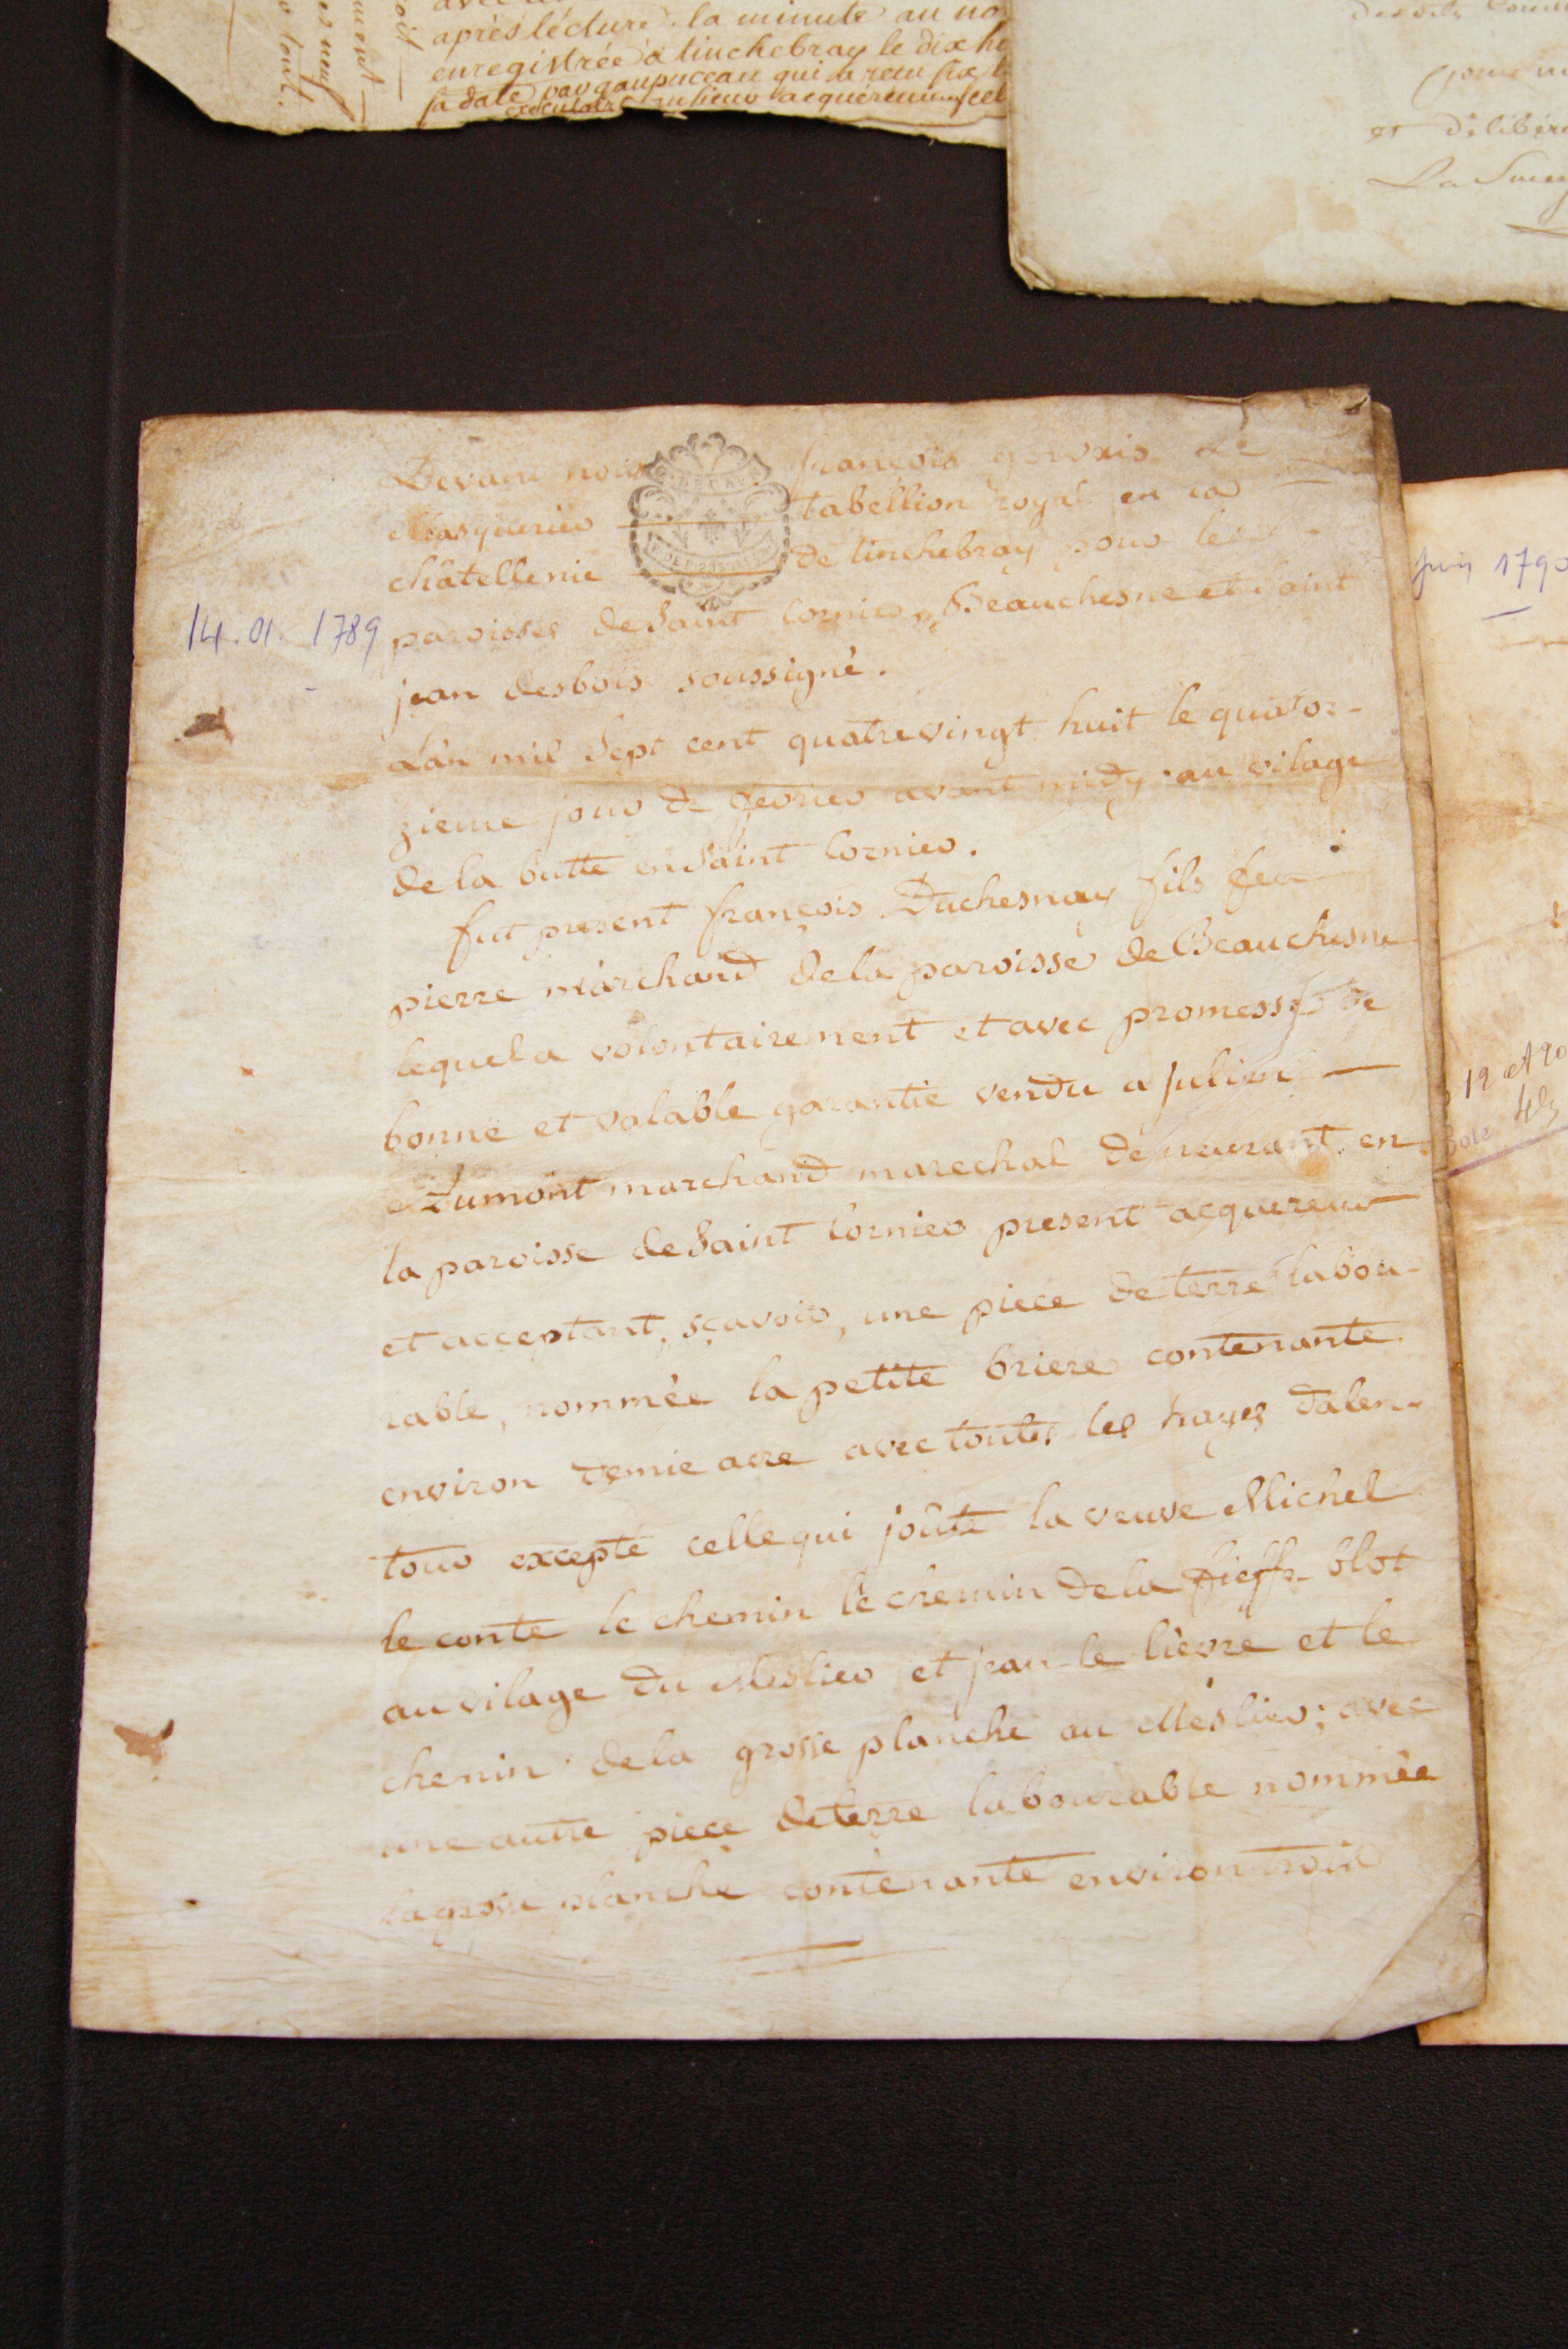 après lécture. la minute au no
enregistrée à tinchebray le dix h
sa date par gaupuceau qui a recu six
Devant nous françois gervais Le
Masquerier tabellion royal en la
châtellenie de tinchebray pour les
paroisses de Saint Cornier, Beauchesne et Saint
jean desbois soussigné.
14.01.1789
L'an mil Sept cent quatrevingt huit le quator-
zieme jour de fevrier avant midy au vilage
de la butte en Saint Cornier.
fut present françois Duchesnay fils feu
pierre marchand de la paroisse de Beauchesne
lequel a volontairement et avec promesse de
bonne et valable garantie vendu a Julien
Dumont marchand marechal demeurant en
la paroisse de Saint Cornier present acquereur
et acceptant, sçavoir, une piece de terre labou-
rable, nommée la petite briere contenante
environ demie acre avec toutes les hayes dalen-
tour excepté celle qui joûte la veuve Michel
le conte le chemin le chemin de la fieffe blot
au vilage du Meslier et jean le lièvre et le
chemin de la grosse planche au Meslier; avec
une autre piece de terre labourable nommée
la grosse planche contenante environ trois
Juin 1790
19 et 20
et délibéré